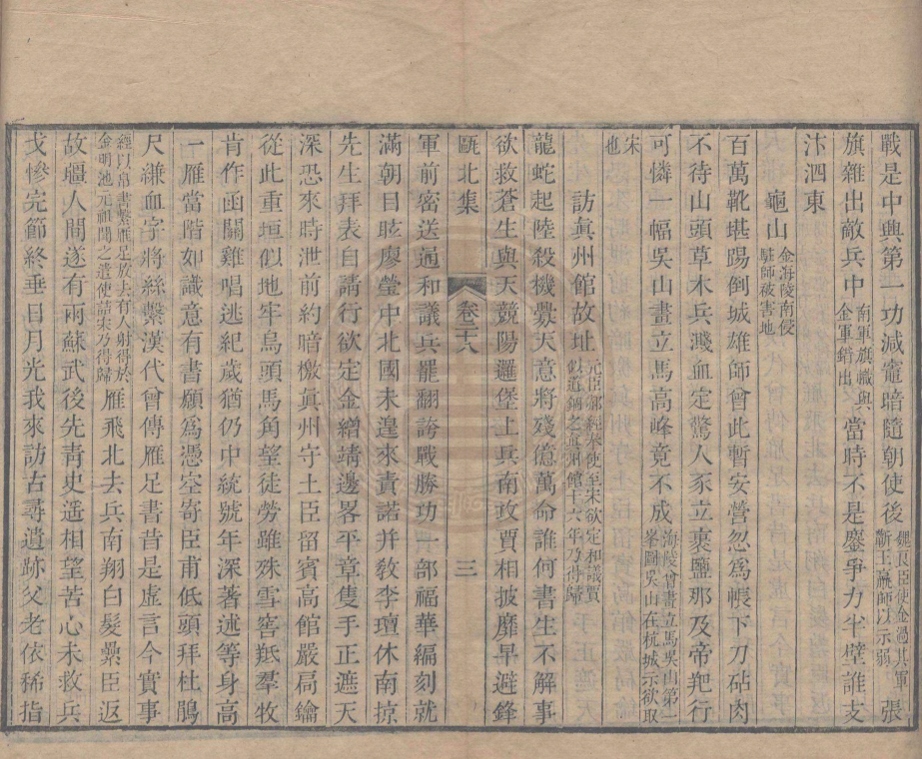 戰是中興第一功減竈暗隨朝使後魏良臣使金過其軍蘄王羸師以示弱張
旗雜出敵兵中南軍旗幟與金軍錯出當時不是鏖爭力半壁誰支
汴泗東
龜山金海陵南侵駐師被害地
百萬靴堪踢倒城雄師曾此暫安營忽爲帳下刀砧肉
不待山頭草木兵濺血定驚人豕立裹鹽那及帝羓行
可憐一幅吳山畫立馬高峰竟不成海陵曾畫立馬吳山第一峯圖吳山在杭城示欲取
宋也
訪眞州館故址元臣郝經奉使至宋欲定和議賈似道錮之眞州館十六年乃得歸
龍蛇起陸殺機釁天意將殘億萬命誰何書生不解事
欲救蒼生與天競陽邏堡上兵南攻賈相披靡早避鋒
甌北集
卷三十八
三
軍前密送過和議兵罷翻誇戰勝功一部福華編刻就
滿朝目眩廖瑩中北國未遑來責諾并敎李璮休南掠
先生拜表自請行欲定金繒靖邊畧平章隻手正遮天
深恐來時泄前約暗檄眞州守土臣留賓高館嚴扃鑰
從此重垣似地牢烏頭馬角望徒勞雖殊雪窖羝羣牧
肯作函關雞唱逃紀歲猶仍中統號年深著述等身高
一雁當階如識意有書願爲憑空寄臣甫低頭拜杜鵑
尺縑血字將絲繫漢代曾傳雁足書昔是虛言今實事
經以帛書繫雁足放去有人射得於金明池元祖聞之遣使詰宋乃得歸雁飛北去兵南翔白髮纍臣返
故疆人間遂有兩蘇武後先靑史遥相望苦心未救兵
戈慘完節終垂日月光我來訪古尋遺跡父老依稀指